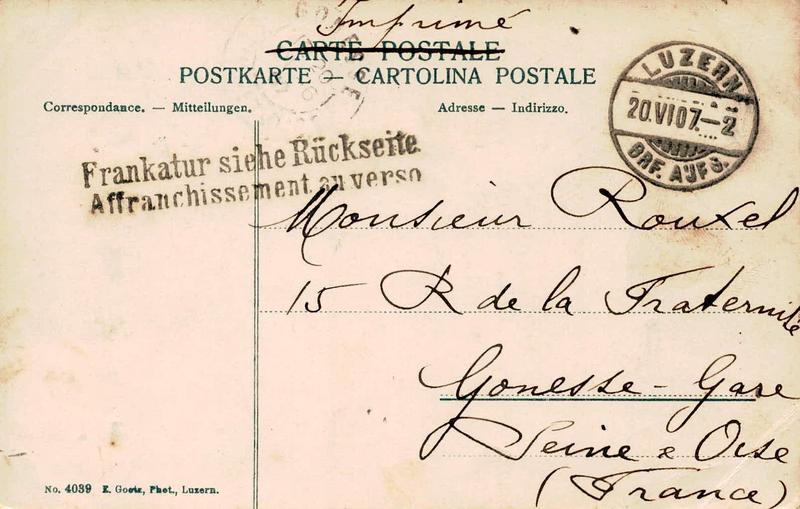 Imprimé
CARTE POSTALE
POSTKARTE — CARTOLINA POSTALE
Correspondance. — Mitteilungen.
Adresse — Indirizzo.
LUZERN
20.VI07.–2
BRF. AUFG.
Frankatur siehe Rückseite
Affranchissement au verso
Monsieur Rouxel
15 R de la Fraternité
Gonesse - Gare
Seine & Oise
(France)
No. 4039 E. Goetz, Phot., Luzern.